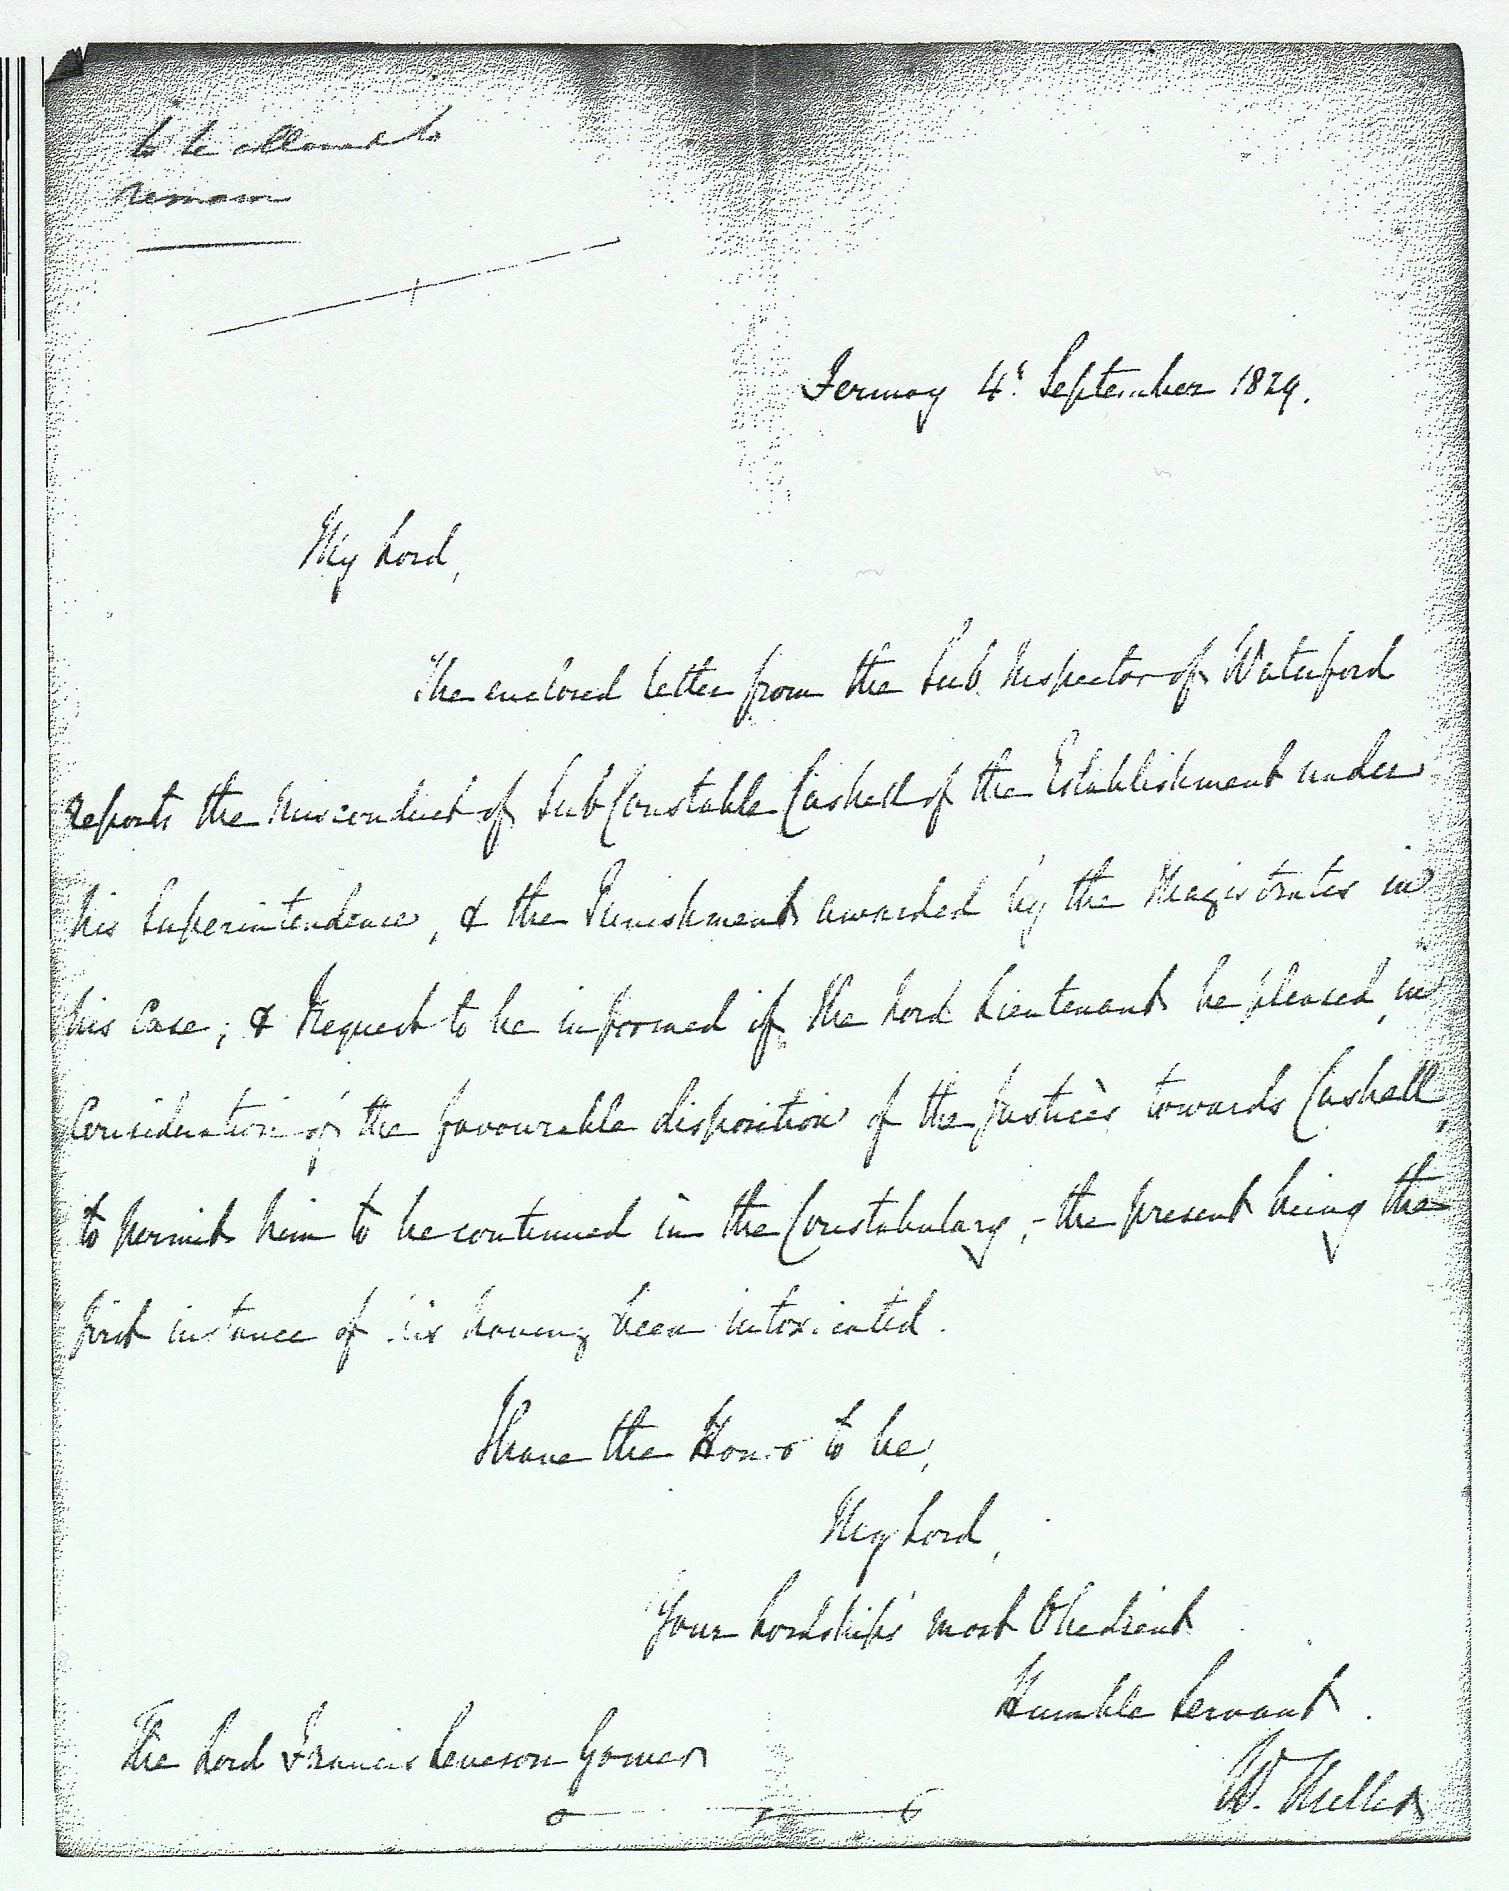 to be allowed to
remain
Fermoy 4th September 1829.
My Lord,
The enclosed letter from the Sub Inspector of Waterford
reports the misconduct of Sub Constable Cashell of the Establishment under
his Superintendence, & the Punishment awarded by the Magistrates in
his Case; & Request to be informed if the Lord Lieutenant be pleased, in
Consideration of the favourable disposition of the Justices towards Cashell,
to permit him to be continued in the Constabulary,- the present being the
first instance of his having been intoxicated.
I have the Honor to be,
My Lord,
Your Lordship's most Obedient
Humble Servant.
The Lord Francis Leveson Gower
W. Miller